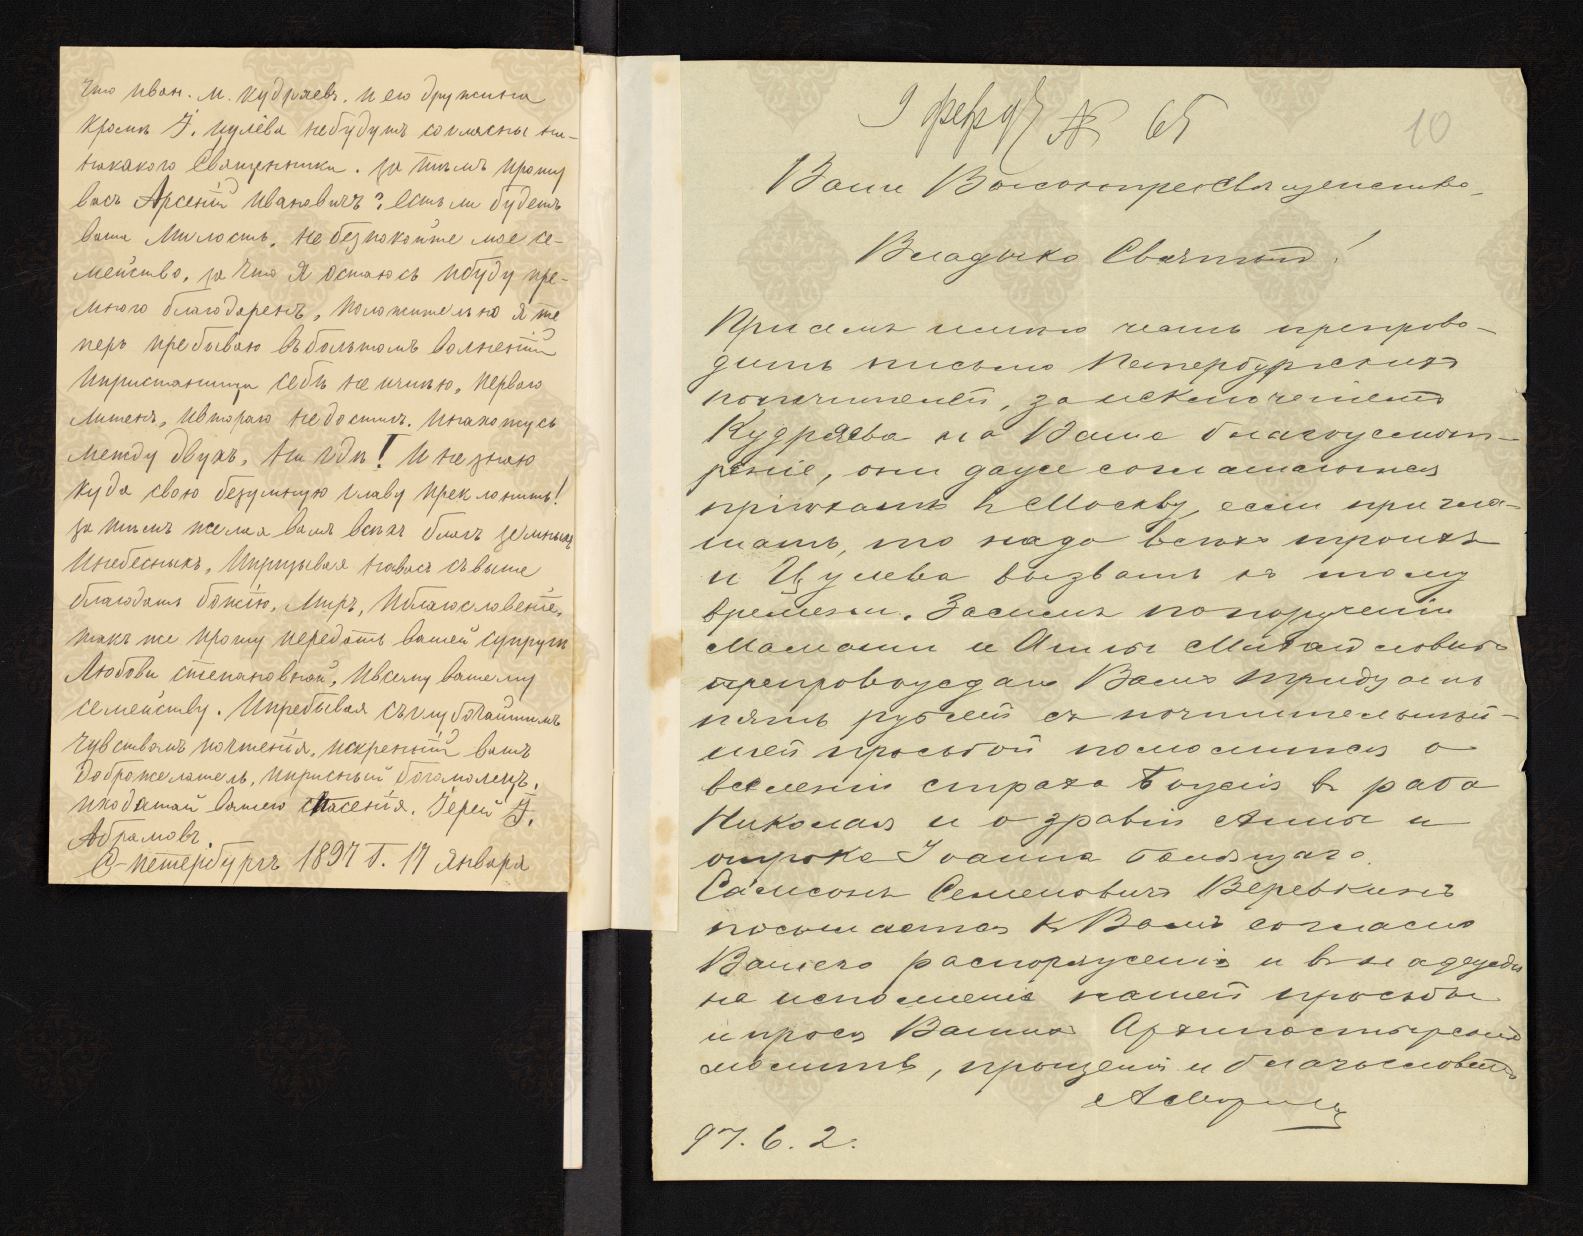 что иван. м. кудряевъ. и его дружина
кромѣ І. цулева небудутъ согласны ни-
накакого Священника. за тѣмъ прошу
васъ Арсеній Ивановичъ? есть ли будетъ
ваша Милость, не безпокойте мое се-
мейство, за что Я остаюсь ибуду пре-
много благодаренъ, положительно я те
перь пребываю въбольшомъ волненіи
ипристанища себѣ не имѣю, первого
лишенъ, ивтораго недостигъ. инахожусь
между двухъ, ни гдѣ! И не знаю
куда свою безумную главу преклонить!
за тѣмъ желая вамъ всѣхъ благъ земныхъ
инебесныхъ, Ипризывая навасъ съвыше
благодать божію, Миръ, Иблагословеніе,
такъ же прошу передать вашей супруги
Любови степановной, ивсему вашему
семейству. Ипребывая съглубочайшимъ
чувствамъ почтенія, искреній вашъ
доброжелатель, иприсный богомолецъ,
иходатай вашего спасенія. Іерей І.
Абрамовъ.
С-петербургъ 1897 г. 17 Января
9 февр № 65
10
Ваше Высокопреосвященство
Владыко Святый!
При семъ имѣю честь препрово-
дить письмо Петербургскихъ
попечителей, за исключеніемъ
Кудряева на Ваше благоусмот-
реніе, они даже соглашаются
пріѣхать в Москву, если пригла-
шать, то надо всѣхъ троихъ
и Цулева вызвать къ тому
времени. Засимъ по порученіи
Мамаши и Анны Михайловны
препровождаю Вамъ тридцать
пять рублей съ почтительнѣй-
шей просьбой помолится о
вселеніи страха Божія в раба
Николая и о здравіи Анны и
отрока Іоанна болящаго.
Самсонъ Семеновичъ Веревкинъ
посылается к Вамъ согласно
Вашего распоряженія и в надежды
на исполненіе нашей просьбы
и прося Вашихъ Архипастырскихъ
молитвъ, прощенія и благословенія
97. 6. 2.